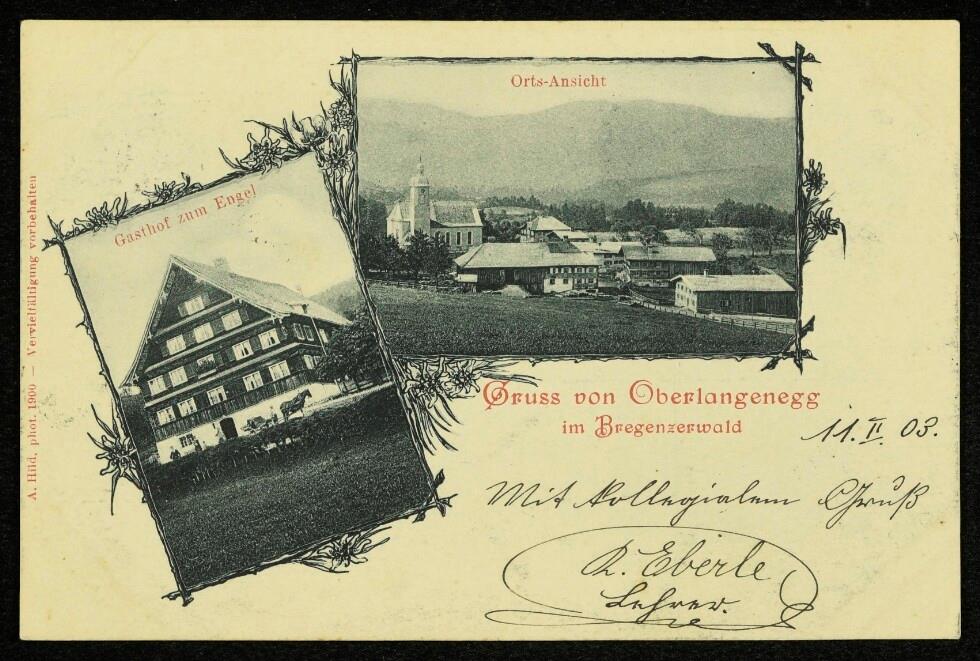 Orts-Ansicht
Gasthof zum Engel
A. Hild, phot. 1900 — Vervielfältigung vorbehalten
Gruss von Oberlangenegg
im Bregenzerwald
11. II 03.
Mit kollegialem Gruß
R. Eberle
Lehrer.